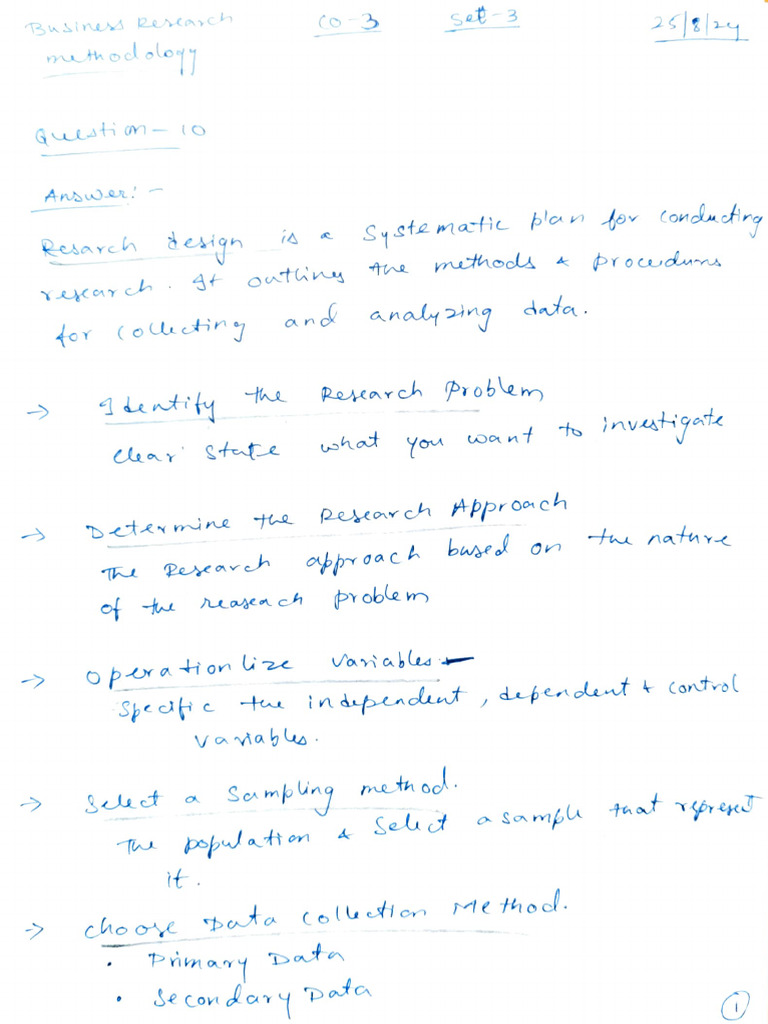 Business Research CO-3 Set-3 25/8/24
methodology
Question-10
Answer:-
Resarch design is a systematic plan for conducting
research. It outlines the methods & procedures
for collecting and analyzing data.
→ Identify the Research Problem
clear state what you want to investigate
→ Determine the Research Approach
The Research approach based on the nature
of the reaseach problem
→ Operationlize variables:-
Specific the independent, dependent & control
variables.
→ Select a Sampling method.
The population & select a sample that represent
it.
→ Choose Data Collection Method.
• Primary Data
• Secondary Data
1